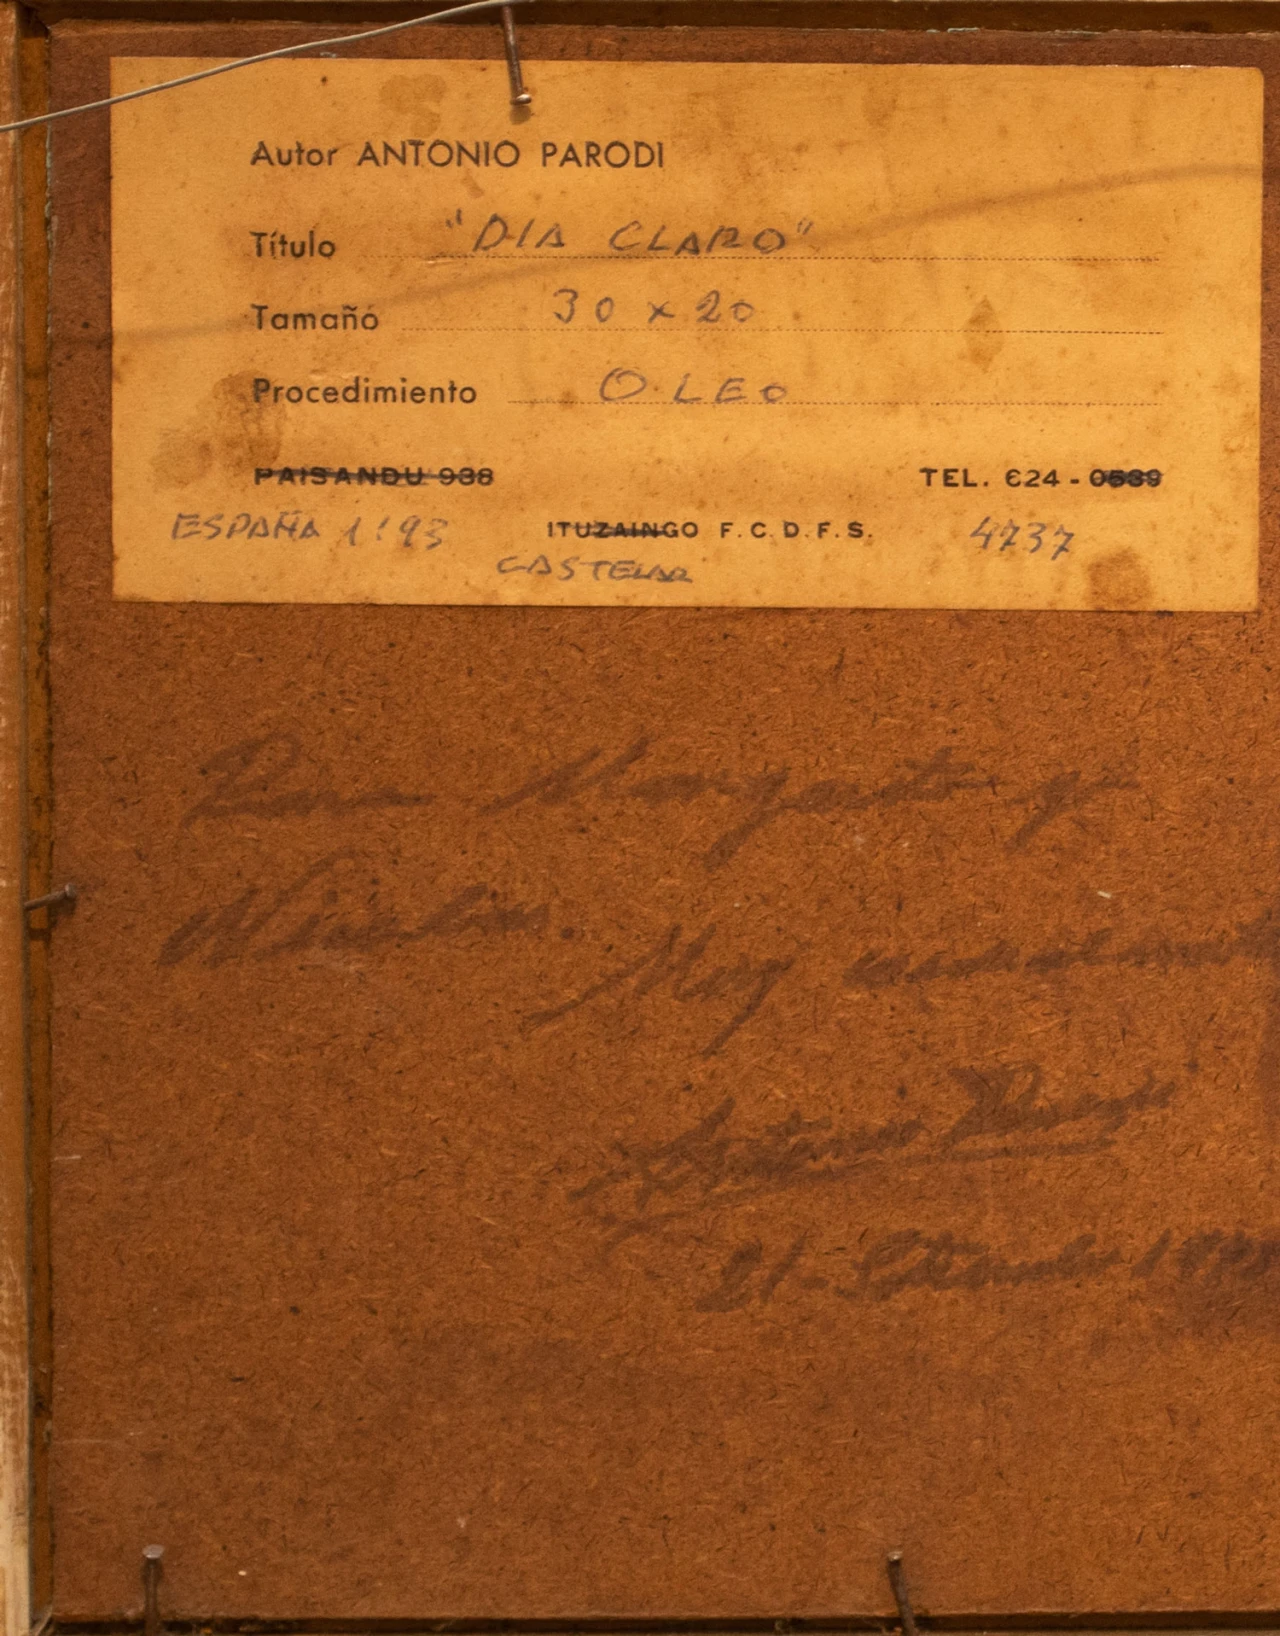 Autor ANTONIO PARODI
Título "DIA CLARO"
Tamaño 30 x 20
Procedimiento OLEO
PAISANDU 938 TEL. 624 - 0539
ESPAÑA 1193 ITUZAINGO F. C. D. F. S. 4737
CASTELAR
Para Margarita y
Muy
Antonio Parodi
21 - Setiembre